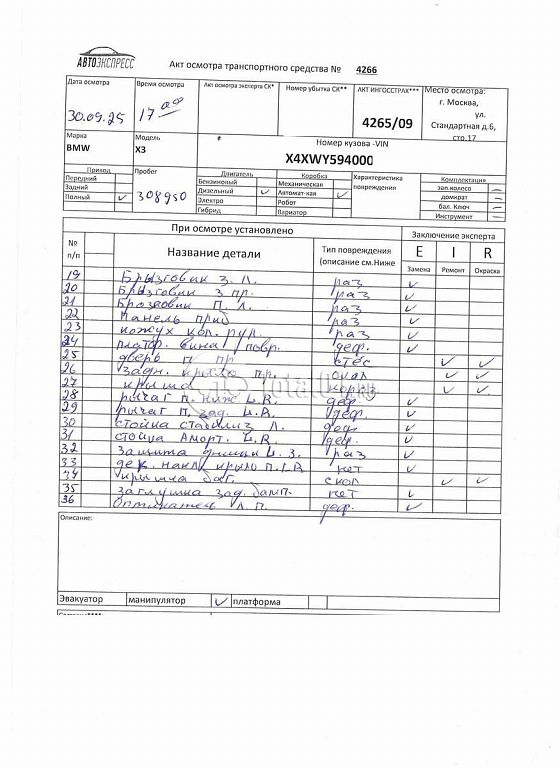 АВТОЭКСПРЕСС
Акт осмотра транспортного средства № 4266
Дата осмотра
Время осмотра
Акт осмотра эксперта СК*
Номер убытка СК**
АКТ ИНГОССТРАХ***
Место осмотра:
30.09.25
17 00
4265/09
г. Москва,
ул.
Стандартная д.6,
стр.17
Марка
Модель
#
Номер кузова -VIN
BMW
X3
X4XWY594000
Привод
Пробег
Двигатель
Коробка
Характеристика повреждения
Комплектация
Передний
308950
Бензиновый
Механическая
зап.колесо —
Задний
Дизельный ✓
Автомат-кая ✓
домкрат —
Полный ✓
Электро
Робот
бал. Ключ —
Гибрид
Вариатор
Инструмент —
При осмотре установлено
Заключение эксперта
№ п/п
Название детали
Тип повреждения (описание см.Ниже
E I R
Замена Ремонт Окраска
19 Брызговик З. Л. раз ✓
20 Брызговик З пр. раз ✓
21 Брызговик П. Л. раз ✓
22 Панель приб раз ✓
23 кожух кол. рул. раз ✓
24 повр. деф. ✓
25 дверь П пр стес ✓ ✓
26 задн. крыло пр. скол ✓ ✓
27 крыша корроз ✓ ✓
28 рычаг П. ниж L.R. деф. ✓
29 рычаг П. зад. L.R. деф. ✓
30 стойка стабилиз Л. деф ✓
31 стойка Аморт. L.R. деф. ✓
32 защита днища L. З. раз ✓
33 накл крыло П. L.R нет ✓
34 крышка баг. скол ✓ ✓
35 заглушка зад. бамп. нет ✓
36 П. деф. ✓
Описание:
Эвакуатор
манипулятор ✓
платформа